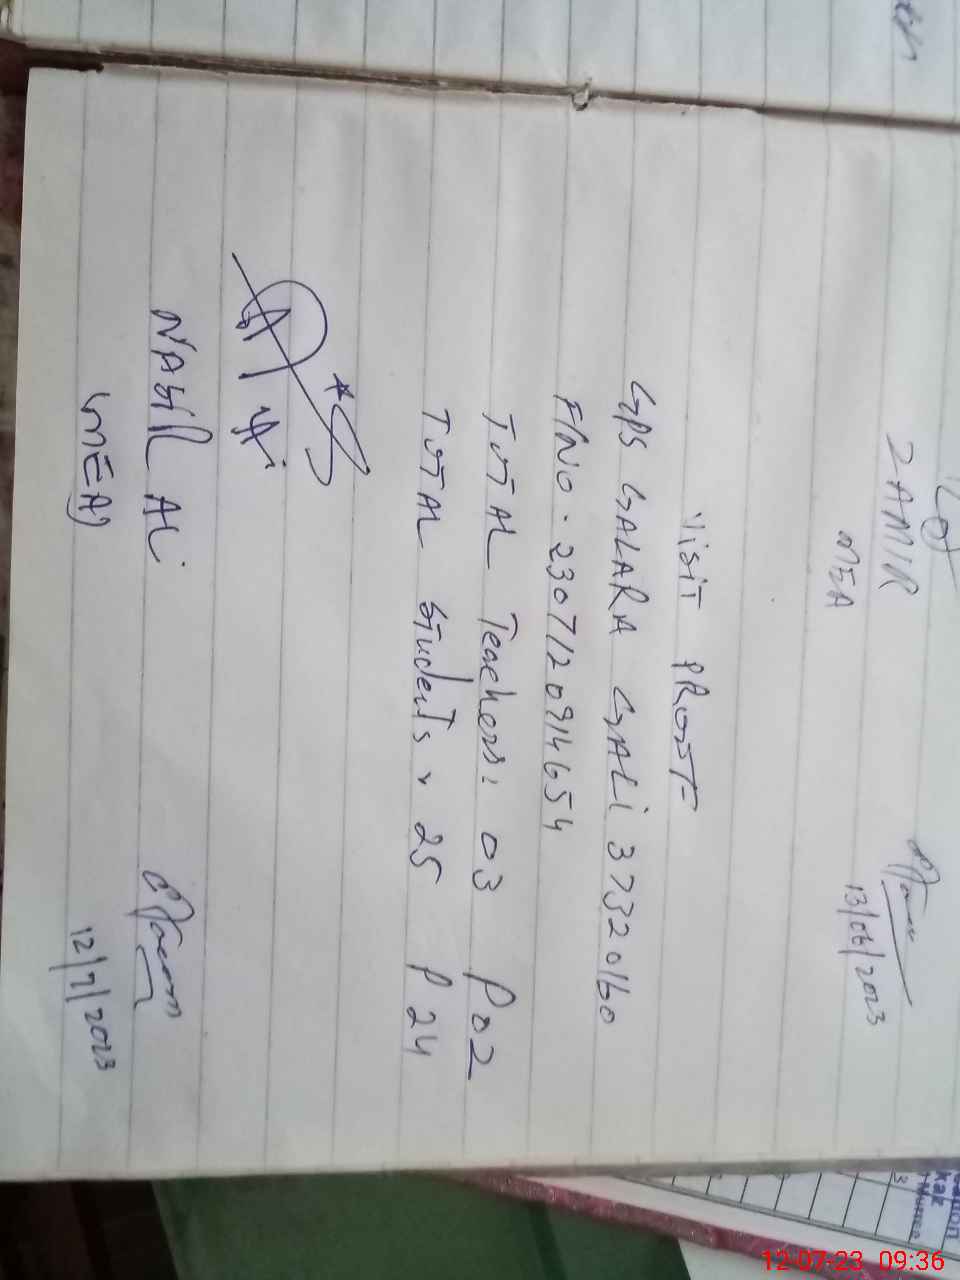 ZAMIR
MEA
13/06/2023
VISIT PROOF
GPS GALARA GALI 37320160
F/NO. 2307120914654
TOTAL Teachers: 03 P 02
TOTAL Students 25 P 24
NASIR ALi
(MEA)
12/7/2023
12-07-23 09:36